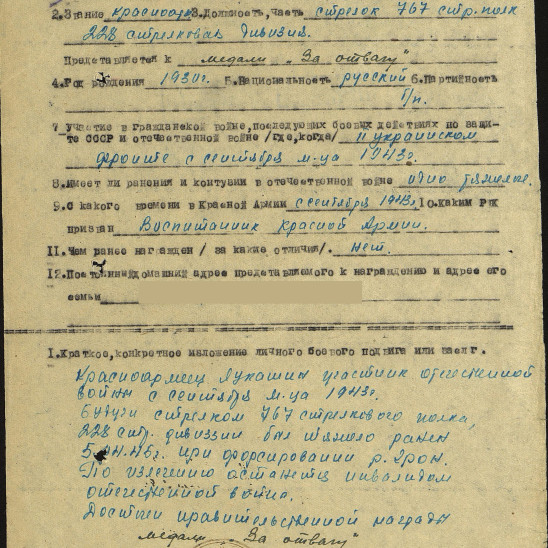 2.Звание красноарм 3.Должность, часть стрелок 767 стр. полк
228 стрелковая дивизия.
Представляется к медали „За отвагу"
4.Год рождения 1930г. 5.Национальность русский 6.Партийность
б/п.
7 Участие в гражданской войне,последующих боевых действиях по защи-
те СССР и отечественной войне /где,когда/ II украинском
фронте с сентября м-ца 1943г.
8.Имеет ли ранения и контузии в отечественной войне одно тяжелое.
9.С какого времени в Красной Армии с сентября 1943г. 10.Каким РВК
призван Воспитанник Красной Армии.
11.Чем ранее награжден / за какие отличия/. нет.
12.Постоянный домашний адрес представляемого к награждению и адрес его
семьи
1.Краткое,конкретное изложение личного боевого подвига или заслуг.
Красноармеец Лукашин участник отечественной
войны с сентября м-ца 1943г.
Будучи стрелком 767 стрелкового полка,
228 стр. дивизии был тяжело ранен
при форсировании р. Грон.
По излечению остается инвалидом
отечественной войны.
Достоин правительственной награды
медали „За отвагу"